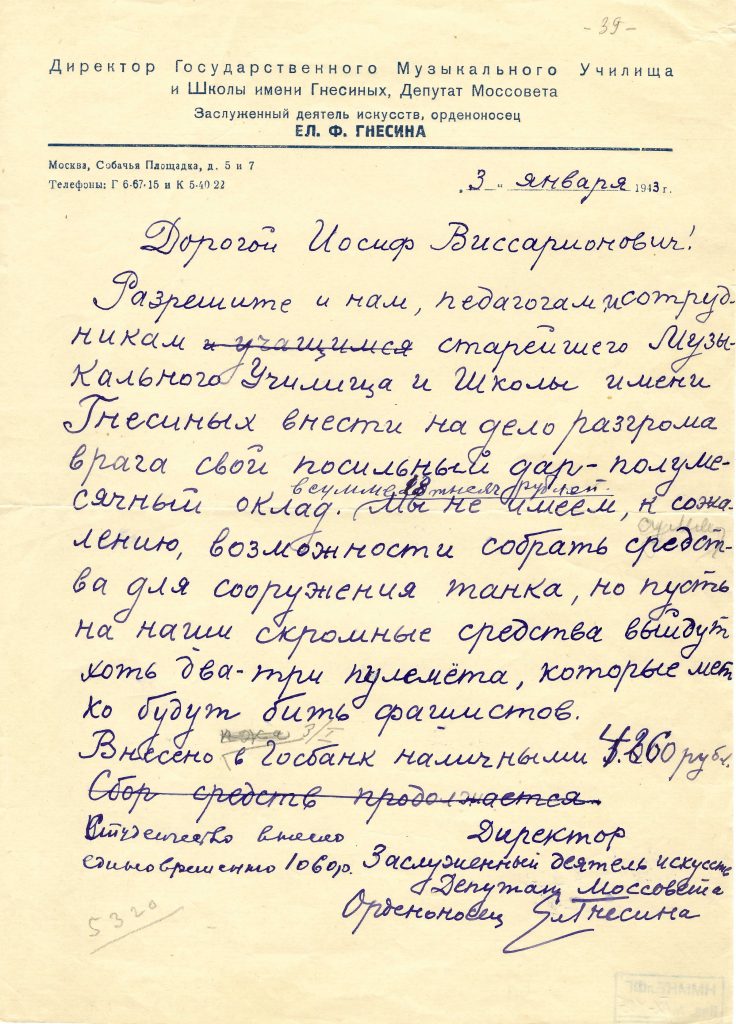 - 39 -
Директор Государственного Музыкального Училища
и Школы имени Гнесиных, Депутат Моссовета
Заслуженный деятель искусств, орденоносец
ЕЛ. Ф. ГНЕСИНА
Москва, Собачья Площадка, д. 5 и 7
Телефоны: Г 6-67-15 и К 5-40 22
„3“ января 1943 г.
Дорогой Иосиф Виссарионович!
Разрешите и нам, педагогам и сотруд-
никам и учащимся старейшего Музы-
кального Училища и Школы имени
Гнесиных внести на дело разгрома
врага свой посильный дар - полуме-
в сумме 18 тысяч рублей.
сячный оклад. Мы не имеем, к сожа-
лению, возможности собрать средст-
ва для сооружения танка, но пусть
на наши скромные средства выйдут
хоть два-три пулемёта, которые мет
ко будут бить фашистов.
3/I
Внесено в Госбанк наличными 4.260 рубл.
Сбор средств продолжается
Студенчество внесло
единовременно 1060 р.
Директор
Заслуженный деятель искусств
Депутат Моссовета
Орденоносец Ел Гнесина
5320